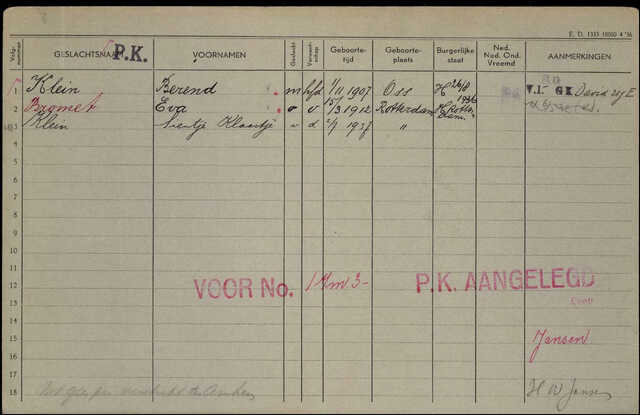 E. D. 1333 10000 4 '36
Volg-nummer GESLACHTSNAAM P.K. VOORNAMEN Geslacht Verwant-schap Geboorte-tijd Geboorte-plaats Burgerlijke staat Ned. Ned. Ond. Vreemd AANMERKINGEN
1 Klein Berend m hfd 1/11 1907 Oss H 26/8 1936 V.I. GK David
2 Bromet Eva v v 15/3 1912 Rotterdam H. Rotterdam
3 Klein Sientje Klaartje v d 2/9 1937 "
4
5
6
7
8
9
10
11
12 VOOR No. 1 t/m 3- P.K. AANGELEGD
13 Contr
14
15 Jansen
16
17
18 H W Jansen